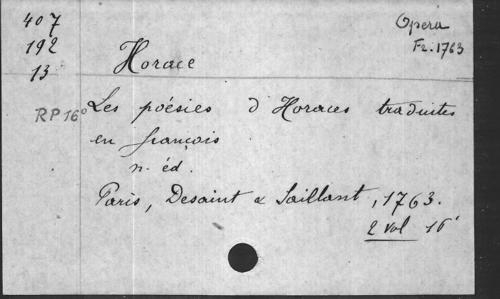 407
192
13
Opera
Fr. 1763
Horace
RP 16°
Les poésies d'Horaces traduites
en françois
n. éd.
Paris, Desaint & Saillant, 1763.
2 vol 16°